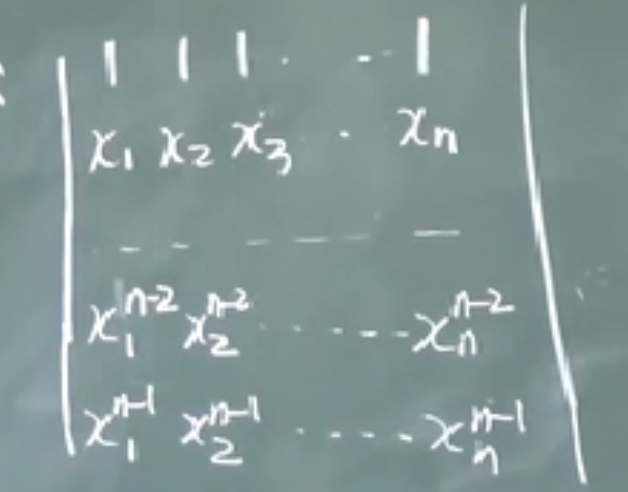 1 1 1 . . - 1
x₁ x₂ x₃ . xₙ
- - - - - -
x₁ⁿ⁻² x₂ⁿ⁻² . . . . . xₙⁿ⁻²
x₁ⁿ⁻¹ x₂ⁿ⁻¹ . . . . . xₙⁿ⁻¹